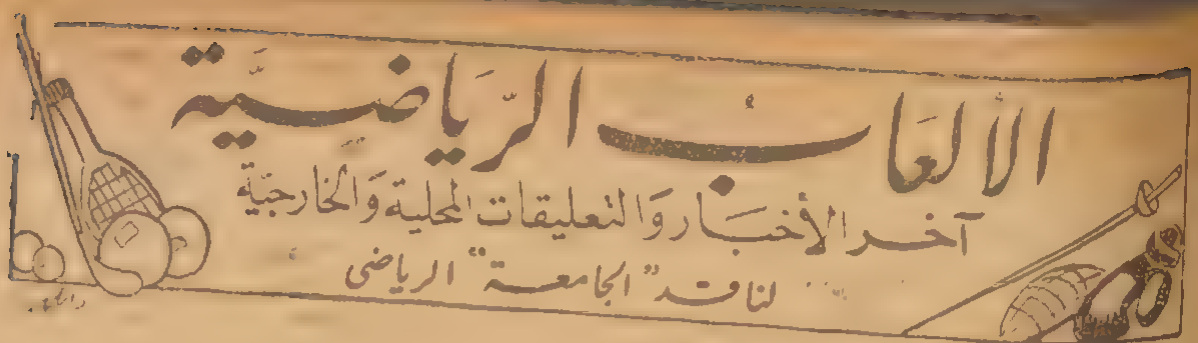 الألعَابُ الرِّيَاضِيَّة
آخر الأخبَار وَالتعليقات المحلية وَالخارجيَّة
لناقد "الجامعة" الرياضى